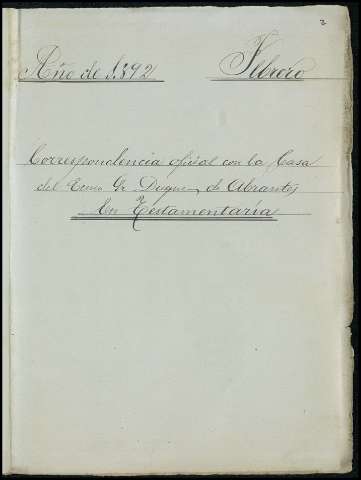 2
Año de 1.892 Febrero
Correspondencia oficial con la Casa
del Exmo Sr. Duque de Abrantes
En Testamentaría